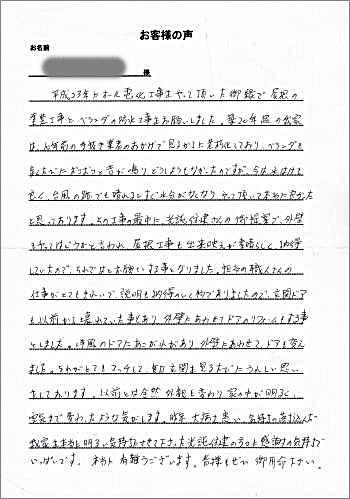 お客様の声
お名前
様
平成23年にオール電化工事をやって頂いた御縁で屋根の
塗装工事とベランダの防水工事をお願いしました。築20年超の我家
は、以前の手抜き業者のおかげで見るからに老朽化しており、ベランダも
歩くたびにぼこぼこと音が鳴りどうしようもなかったのですが、今は水はけも
良く、台風の跡でも晴れるとすぐ水分がなくなり、やって頂いて本当に良かった
と思っております。その工事の最中に、光誠住建さんの御提案で、外壁
もやってはどうかと言われ、屋根工事も出来映えが素晴らしく納得
していたので、それではとお願いする事となりました。担当の職人さんの
仕事がとてもきれいで、説明も納得のいく物でありましたので、玄関ドア
も以前から壊れていた事もあり、外壁にあわせてドアのリフォームもする事
としました。洋風のドアにあこがれがあり、外壁にあわせて、ドアを変え
ました。それがとてもマッチして、毎日玄関を見るたびにうれしい思い
をしております。以前とは全然外観も変わり家の中が明るく
空気まで変わったような気がします。昨年大病を患い、気持ちの落ち込んだ
我家を本当に明るい気持ちにさせて下さった光誠住建の方々に感謝の気持ちで
いっぱいです。本当に有難うございます。皆様もぜひ御用命下さい。